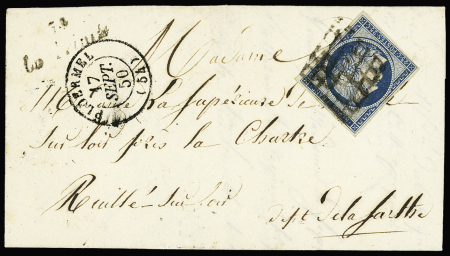 54
PLOERMEL
17
SEPT.
50
(54)
Madame
Madame la Supérieure de
sur loir près la Chartre
Ruillé-sur-loir
dépt de la Sarthe